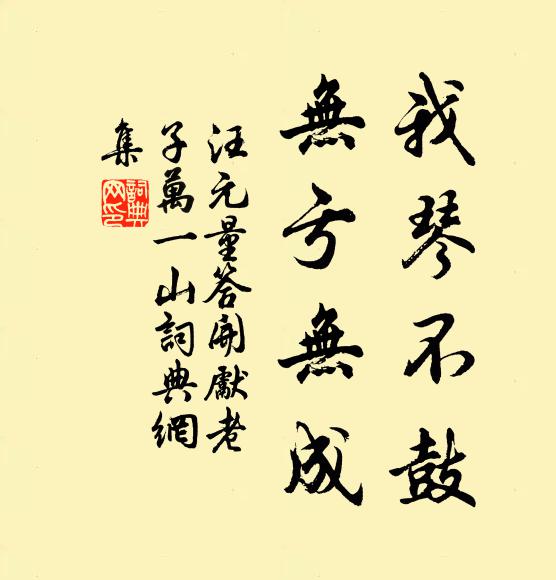 我琴不鼓
無亏無成
汪元量答開獻老
子萬一山詞典網
集
詞典
网印